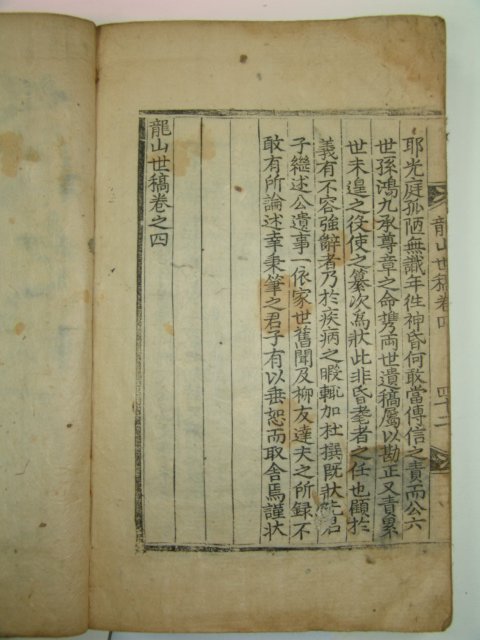 龍山世稿卷四
四十二
耶光庭孤陋無識年徃神昏何敢當傳信之責而公六
世孫鴻九承尊章之命攜兩世遺稿屬以勘正又責累
世未遑之役使之纂次爲狀此非昏耄者之任也顧於
義有不容強辭者乃於疾病之暇輒加杜撰旣狀先君
子繼述公遺事一依家世舊聞及柳友達夫之所錄不
敢有所論述幸秉筆之君子有以垂恕而取舍焉謹狀
龍山世稿卷之四